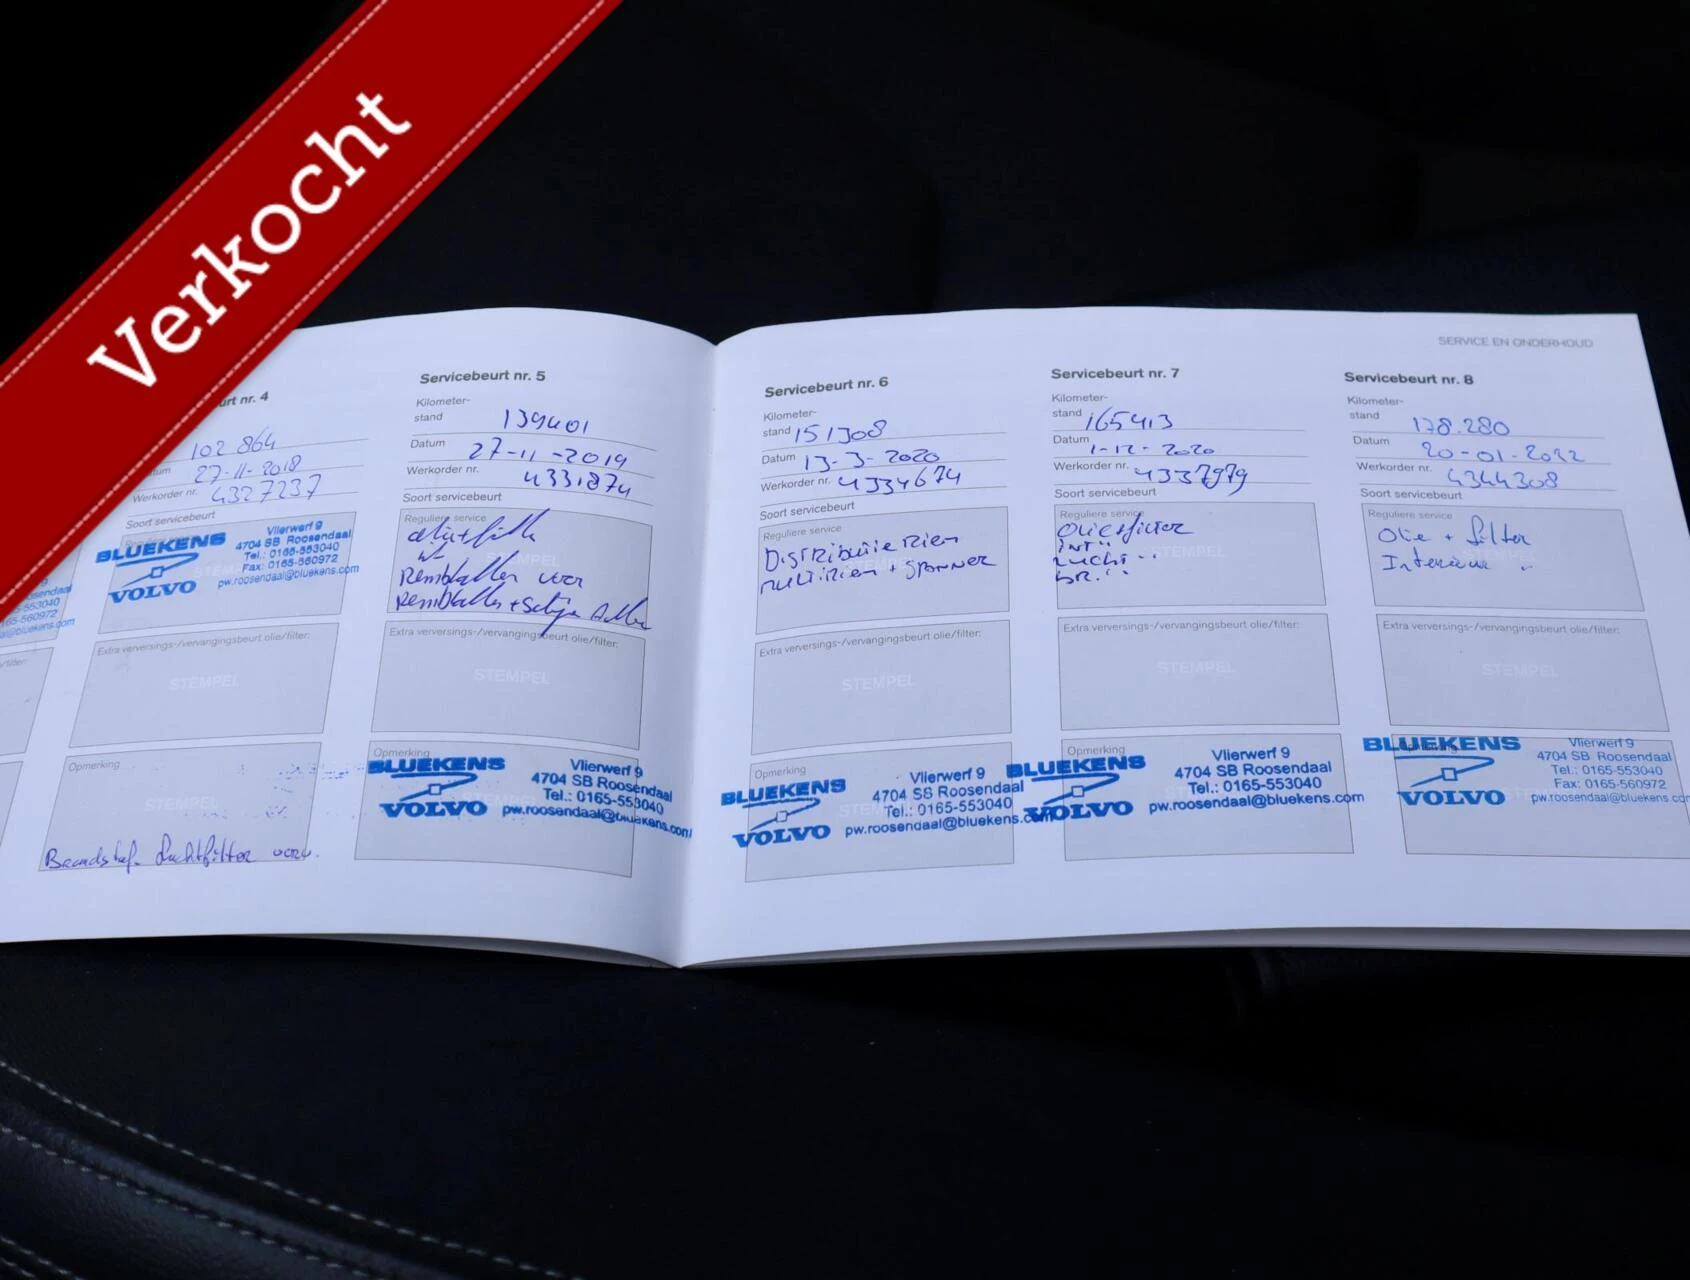 Verkocht
SERVICE EN ONDERHOUD
urt nr. 4
102 864
tum 27-11-2018
Werkorder nr. 4327237
Soort servicebeurt
Reguliere service
BLUEKENS
VOLVO
Vlierwerf 9
4704 SB Roosendaal
Tel.: 0165-553040
Fax: 0165-560972
pw.roosendaal@bluekens.com
Extra verversings-/vervangingsbeurt olie/filter:
STEMPEL
Opmerking
STEMPEL
Brandstof luchtfilter verv.
Servicebeurt nr. 5
Kilometer-
stand 139401
Datum 27-11-2019
Werkorder nr. 4331874
Soort servicebeurt
Reguliere service
STEMPEL
Remblokken voor
Extra verversings-/vervangingsbeurt olie/filter:
STEMPEL
Opmerking
BLUEKENS
VOLVO
Vlierwerf 9
4704 SB Roosendaal
Tel.: 0165-553040
pw.roosendaal@bluekens.com
Servicebeurt nr. 6
Kilometer-
stand 151308
Datum 13-3-2020
Werkorder nr. 4334674
Soort servicebeurt
Reguliere service
Distributie Riem
multiriem + spanner
Extra verversings-/vervangingsbeurt olie/filter:
STEMPEL
Opmerking
BLUEKENS
VOLVO
Vlierwerf 9
4704 SB Roosendaal
Tel.: 0165-553040
pw.roosendaal@bluekens.com
Servicebeurt nr. 7
Kilometer-
stand 165413
Datum 1-12-2020
Werkorder nr. 4337979
Soort servicebeurt
Reguliere service
Olie+filter
INT "
Lucht "
BR. "
Extra verversings-/vervangingsbeurt olie/filter:
STEMPEL
Opmerking
BLUEKENS
VOLVO
Vlierwerf 9
4704 SB Roosendaal
Tel.: 0165-553040
pw.roosendaal@bluekens.com
Servicebeurt nr. 8
Kilometer-
stand 178.280
Datum 20-01-2022
Werkorder nr. 4344308
Soort servicebeurt
Reguliere service
Olie + filter
Interieur "
Extra verversings-/vervangingsbeurt olie/filter:
STEMPEL
Opmerking
BLUEKENS
VOLVO
Vlierwerf 9
4704 SB Roosendaal
Tel.: 0165-553040
Fax: 0165-560972
pw.roosendaal@bluekens.cor